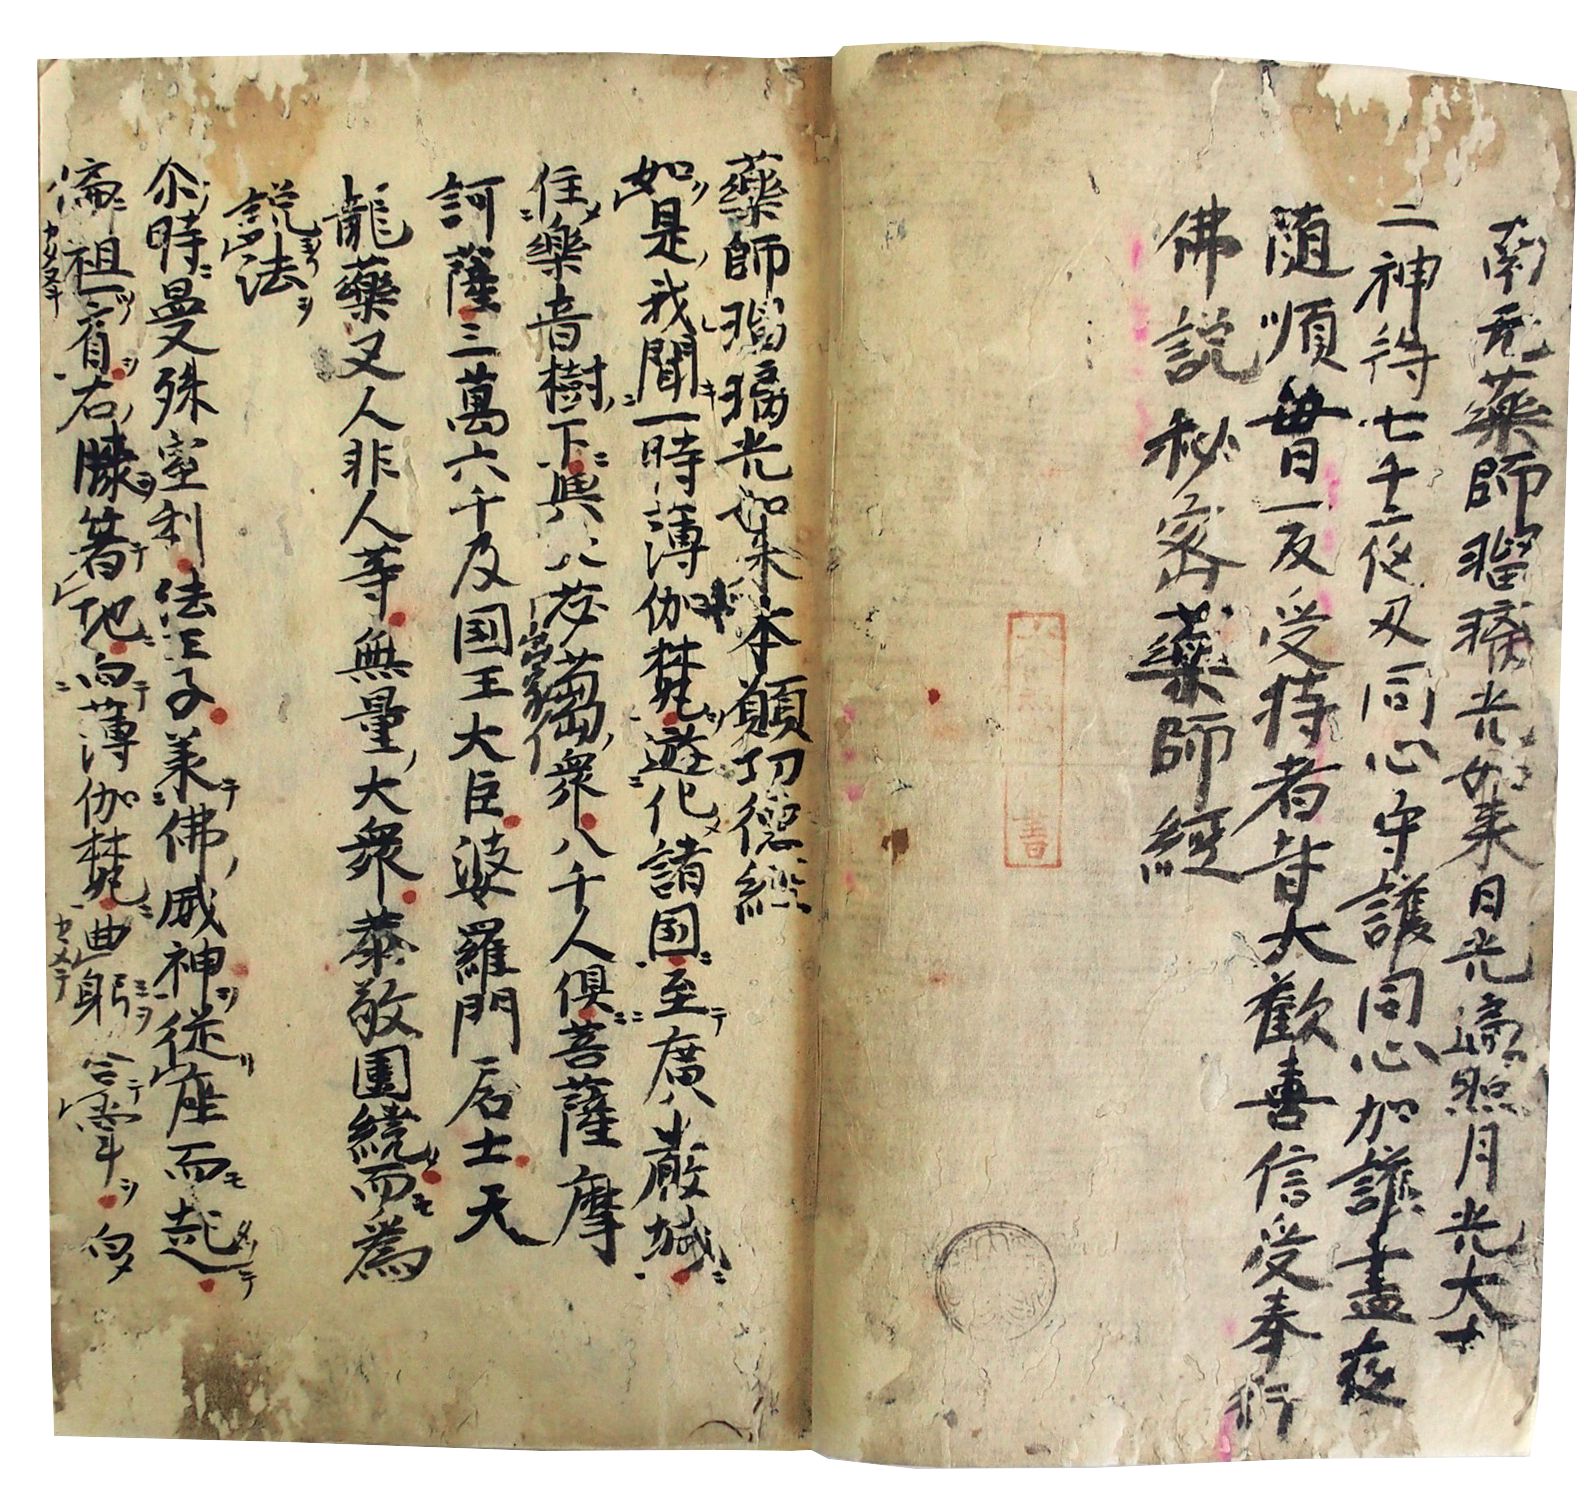 南无藥師瑠璃光如来日光遍照月光大士
二神将七千夜叉同心守護同心加護盡夜
随順昔日一反受持者皆大歡喜信受奉行
佛説秘密藥師經
書
藥師瑠璃光如来本願功德經
如是我聞一時薄伽梵遊化諸国至廣嚴城
住樂音樹下與大苾蒭衆八千人俱菩薩摩
訶薩三萬六千及国王大臣婆羅門居士天
龍藥叉人非人等無量大衆恭敬圍繞而為
説法
尒時曼殊室利法王子羕佛威神從座而起
偏袒一肩右膝著地向薄伽梵曲躬合掌白